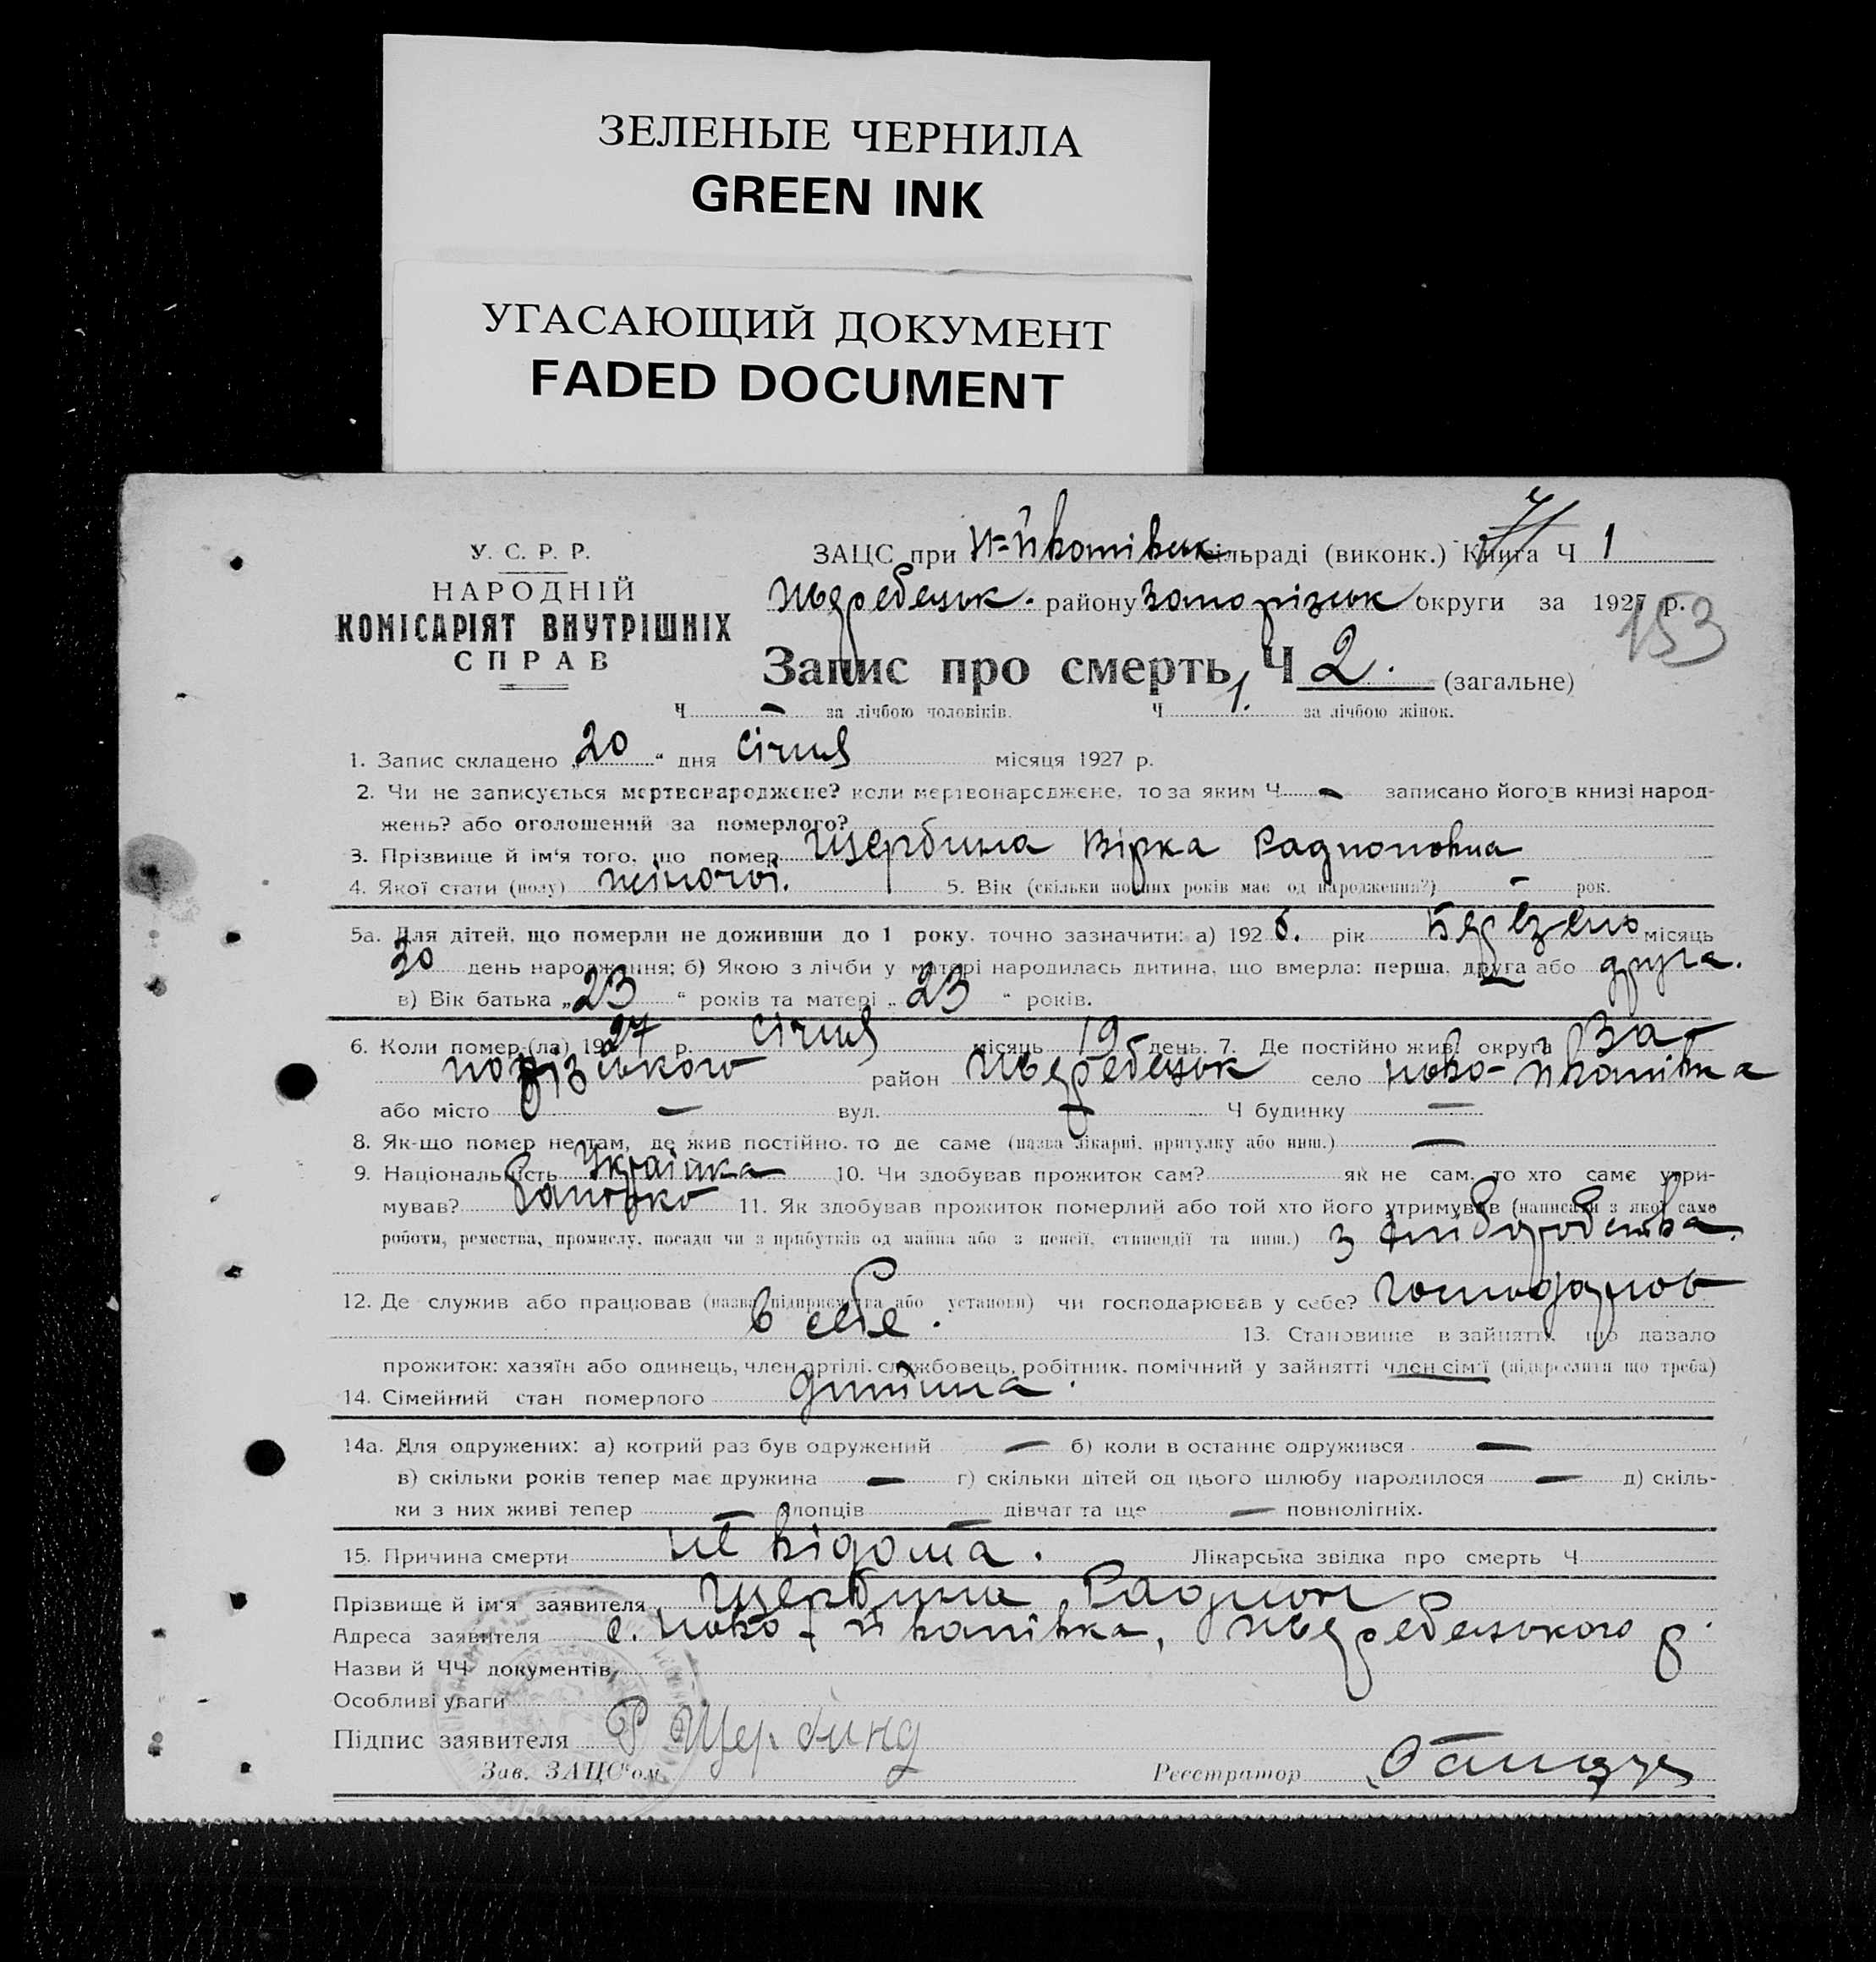 ЗЕЛЕНЫЕ ЧЕРНИЛА
GREEN INK
УГАСАЮЩИЙ ДОКУМЕНТ
FADED DOCUMENT
У. С. Р. Р.
НАРОДНІЙ
КОМІСАРІЯТ ВНУТРІШНІХ
СПРАВ
ЗАЦС при сільраді (виконк.) Книга Ч 1
Жеребецьк. району Запорізьк округи за 1927 р.
153
Запис про смерть, Ч 2. (загальне)
Ч - за лічбою чоловіків. Ч 1. за лічбою жінок.
1. Запис складено „20“ дня Січня місяця 1927 р.
2. Чи не записується мертвонароджене? коли мертвонароджене, то за яким Ч - записано його в книзі народ-
жень? або оголошений за померлого?
3. Прізвище й ім'я того, що помер Щербина Вірка Радионовна
4. Якої стати (полу) жіночої. 5. Вік (скільки повних років має од народження?) - рок.
5а. Для дітей, що померли не доживши до 1 року, точно зазначити: а) 1926. рік Березень місяць
20 день народження; б) Якою з лічби у матері народилась дитина, що вмерла: перша, друга або друга.
в) Вік батька „23“ років та матері „23“ років.
6. Коли помер (ла) 1927 р. Січня місяць 19 день. 7. Де постійно жив: округа За-
порізького район Жеребецьк село Ново-
або місто — вул. — Ч будинку —
8. Як-що помер не там, де жив постійно, то де саме (назва лікарні, притулку або инш.) —
9. Національність Українка 10. Чи здобував прожиток сам? як не сам, то хто саме утри-
мував? 11. Як здобував прожиток померлий або той хто його утримував (написати з якої саме
роботи, ремества, промислу, посади чи з прибутків од майна або з пенсії, стипендії та инш.) з хліборобства.
12. Де служив або працював (назва підприємства або установи) чи господарював у себе? господарюв
в себе. 13. Становище в зайнятті, що давало
прожиток: хазяїн або одинець, член артілі, службовець, робітник, помічний у зайнятті член сім'ї (підкреслити що треба)
14. Сімейний стан померлого дитина.
14а. Для одружених: а) котрий раз був одружений — б) коли в останнє одружився —
в) скільки років тепер має дружина — г) скільки дітей од цього шлюбу народилося — д) скіль-
ки з них живі тепер — хлопців — дівчат та ще — повнолітніх.
15. Причина смерти не відома. Лікарська звідка про смерть Ч
Прізвище й ім'я заявителя Щербина Радион
Адреса заявителя с. Ново- Жеребецького р.
Назви й ЧЧ документів
Особливі уваги
Підпис заявителя Р Щербина
Зав. ЗАЦС'ом Реєстратор